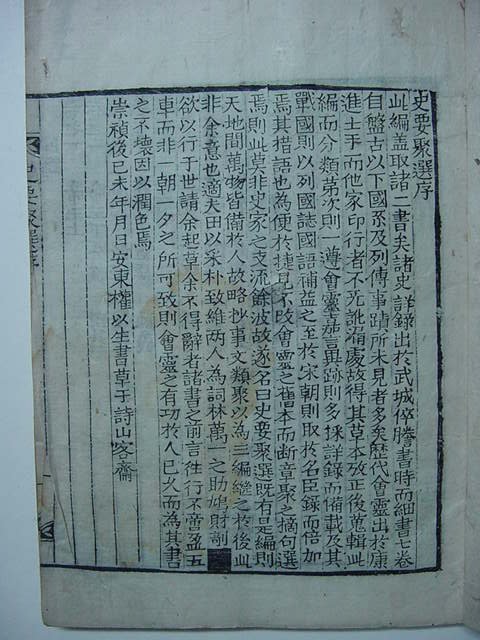 史要聚選序
此編盖取諸二書矣諸史詳録出於武城倅謄書時而細書七卷
自盤古以下國系及列傳事蹟所未見者多矣歷代會靈出於康
進士手而他家印行者不免訛漏處故得其草本攷正後蒐輯此
編而分類第次則一遵會靈嘉言異跡則多採詳録而備載及其
戰國則以列國誌國語補益之至於宋朝則取於名臣録而倍加
焉其措語也為便於捷見不改會靈之舊本而断章聚之摘句選
焉則此莫非史家之支流餘波故遂名曰史要聚選既有是編則
天地間萬物皆備於人故略抄事文類聚以為三編繼之於後此
非余意也適夫田以采朴致維两人為詞林萬一之助鳩財剞
欲以行于世請余起草余不得辭者諸書之前言徃行不啻盈五
車而非一朝一夕之所可致則會靈之有功於人已久而為其書
之不壞因以潤色焉
崇禎後己未年月日安東權以生書草于詩山客齋
史要聚選序